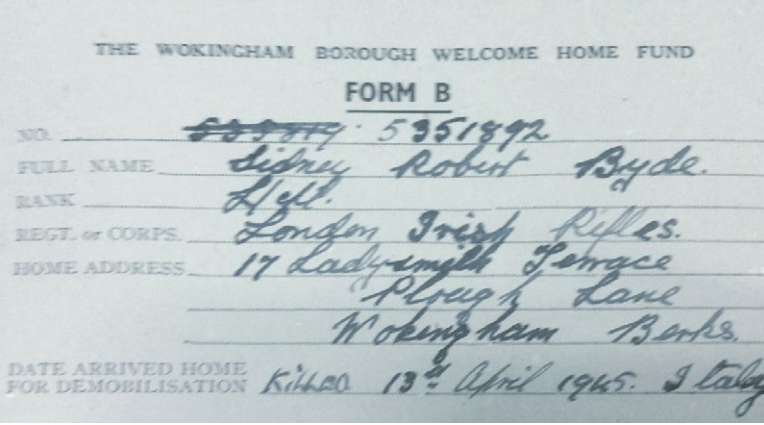 THE WOKINGHAM BOROUGH WELCOME HOME FUND
FORM B
NO. 5351892
FULL NAME Sidney Robert Byde.
RANK
REGT. or CORPS. London Irish Rifles.
HOME ADDRESS 17 Ladysmith Terrace
Plough Lane
Wokingham Berks.
DATE ARRIVED HOME
FOR DEMOBILISATION Killed 13th April 1945. Italy